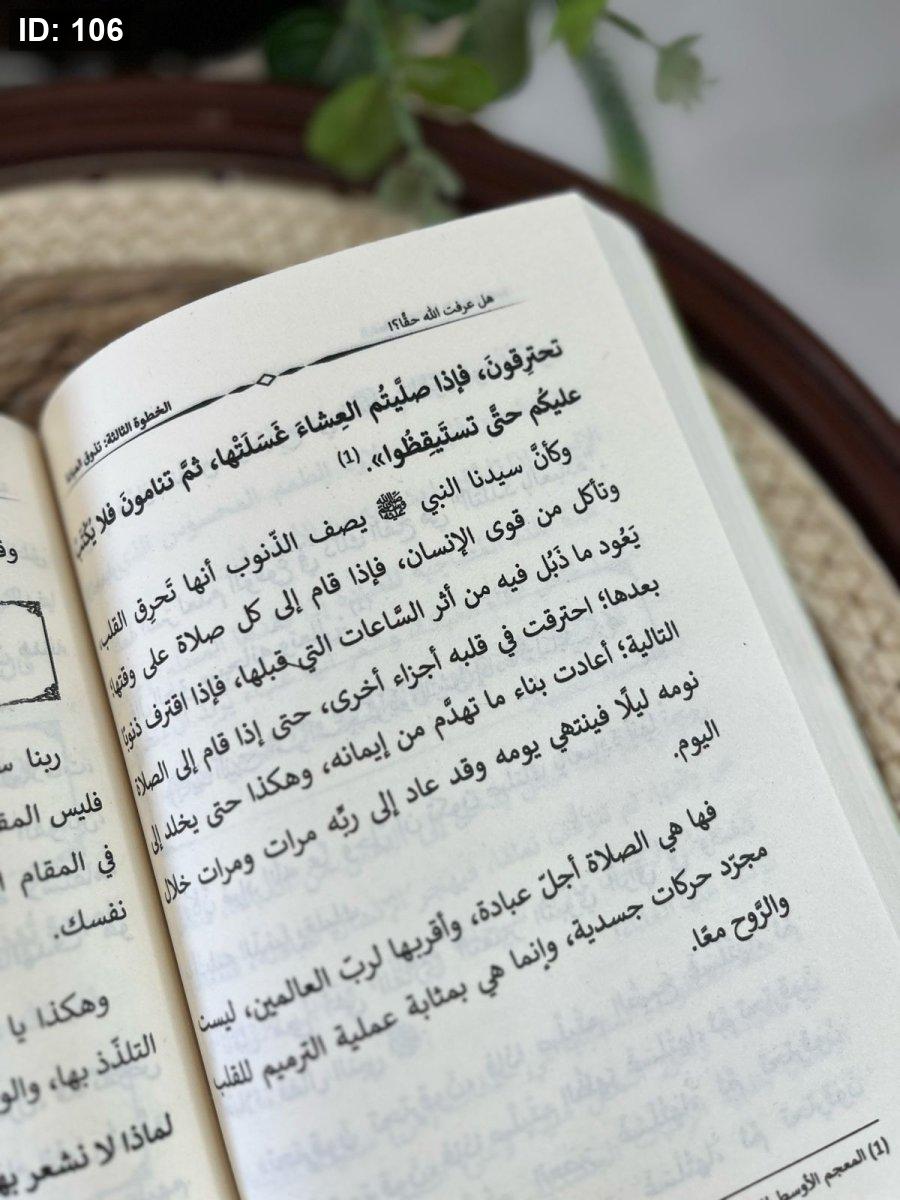 ID: 106
هل عرفت الله حقًّا؟!
الخطوة الثالثة: تذوق
تحترِقونَ، فإذا صلَّيتُم العِشاءَ غَسَلَتْها، ثمَّ تنامونَ فلا يُكْتَبُ
عليكُم حتَّى تستَيقِظُوا». (1)
وكأنَّ سيدنا النبي ﷺ يصف الذّنوب أنها تَحرِق القلب،
وتأكل من قوى الإنسان، فإذا قام إلى كل صلاة على وقتها؛
يَعُود ما ذَبُل فيه من أثر السَّاعات التي قبلها، فإذا اقترف ذنوبًا
بعدها؛ احترقت في قلبه أجزاء أخرى، حتى إذا قام إلى الصلاة
التالية؛ أعادت بناء ما تهدَّم من إيمانه، وهكذا حتى يخلد إلى
نومه ليلًا فينتهي يومه وقد عاد إلى ربِّه مرات ومرات خلال
اليوم.
فها هي الصلاة أجلّ عبادة، وأقربها لربّ العالمين، ليست
مجرّد حركات جسدية، وإنما هي بمثابة عملية الترميم للقلب
والرَّوح معًا.
(1) المعجم الأوسط
ربنا
فليس
في المقام
نفسك.
وهكذا يا
التلذّذ بها،
لماذا لا نشعر